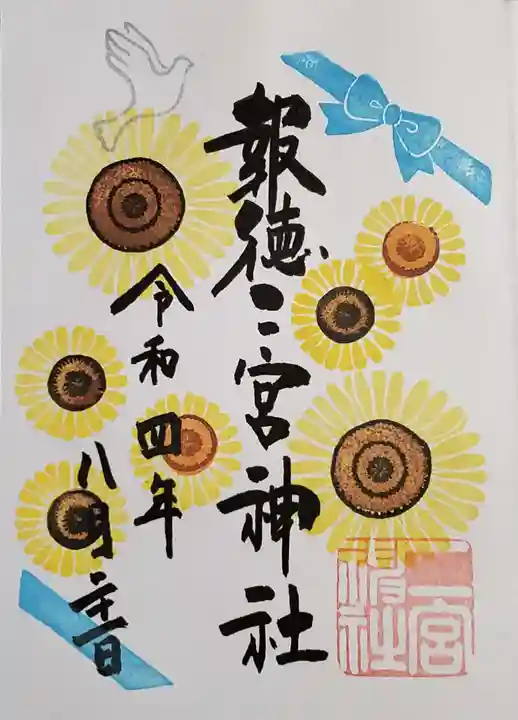 報徳二宮神社
令和四年
八月二十一日
二宮神社